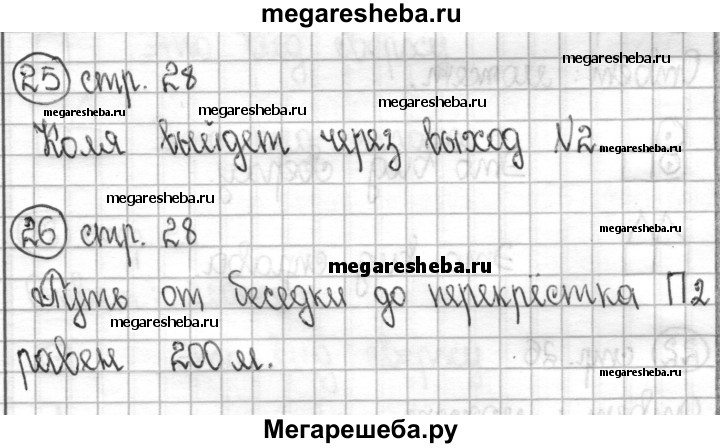 megaresheba.ru
25 стр. 28
megaresheba.ru
megaresheba.ru
megaresheba.ru
megaresheba.ru
Коля выйдет через выход №2
megaresheba.ru
megaresheba.ru
26 стр. 28
megaresheba.ru
megaresheba.ru
Путь от беседки до перекрёстка П2
megaresheba.ru
равен 200 м.
megaresheba.ru
Мегарешеба.ру